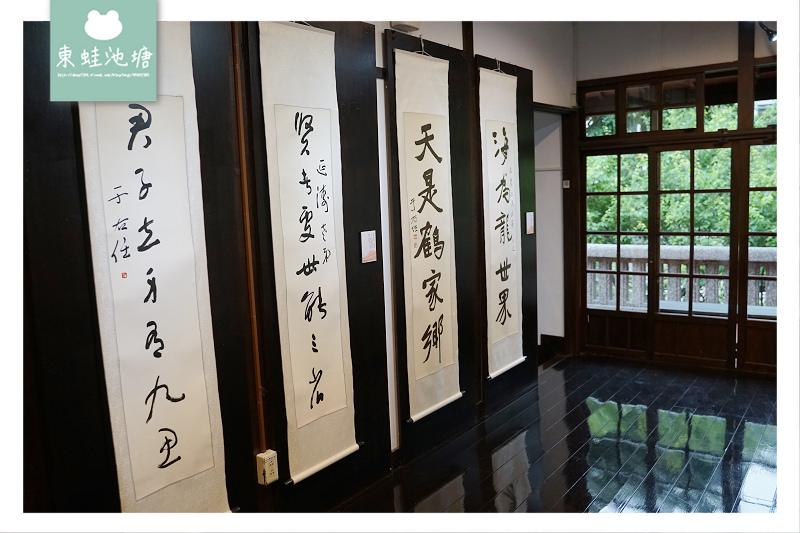 東蛙池塘
君子立身有九思
于右任
賢者處世能三省
延濤老弟
天是鶴家鄉
于右任
海為龍世界